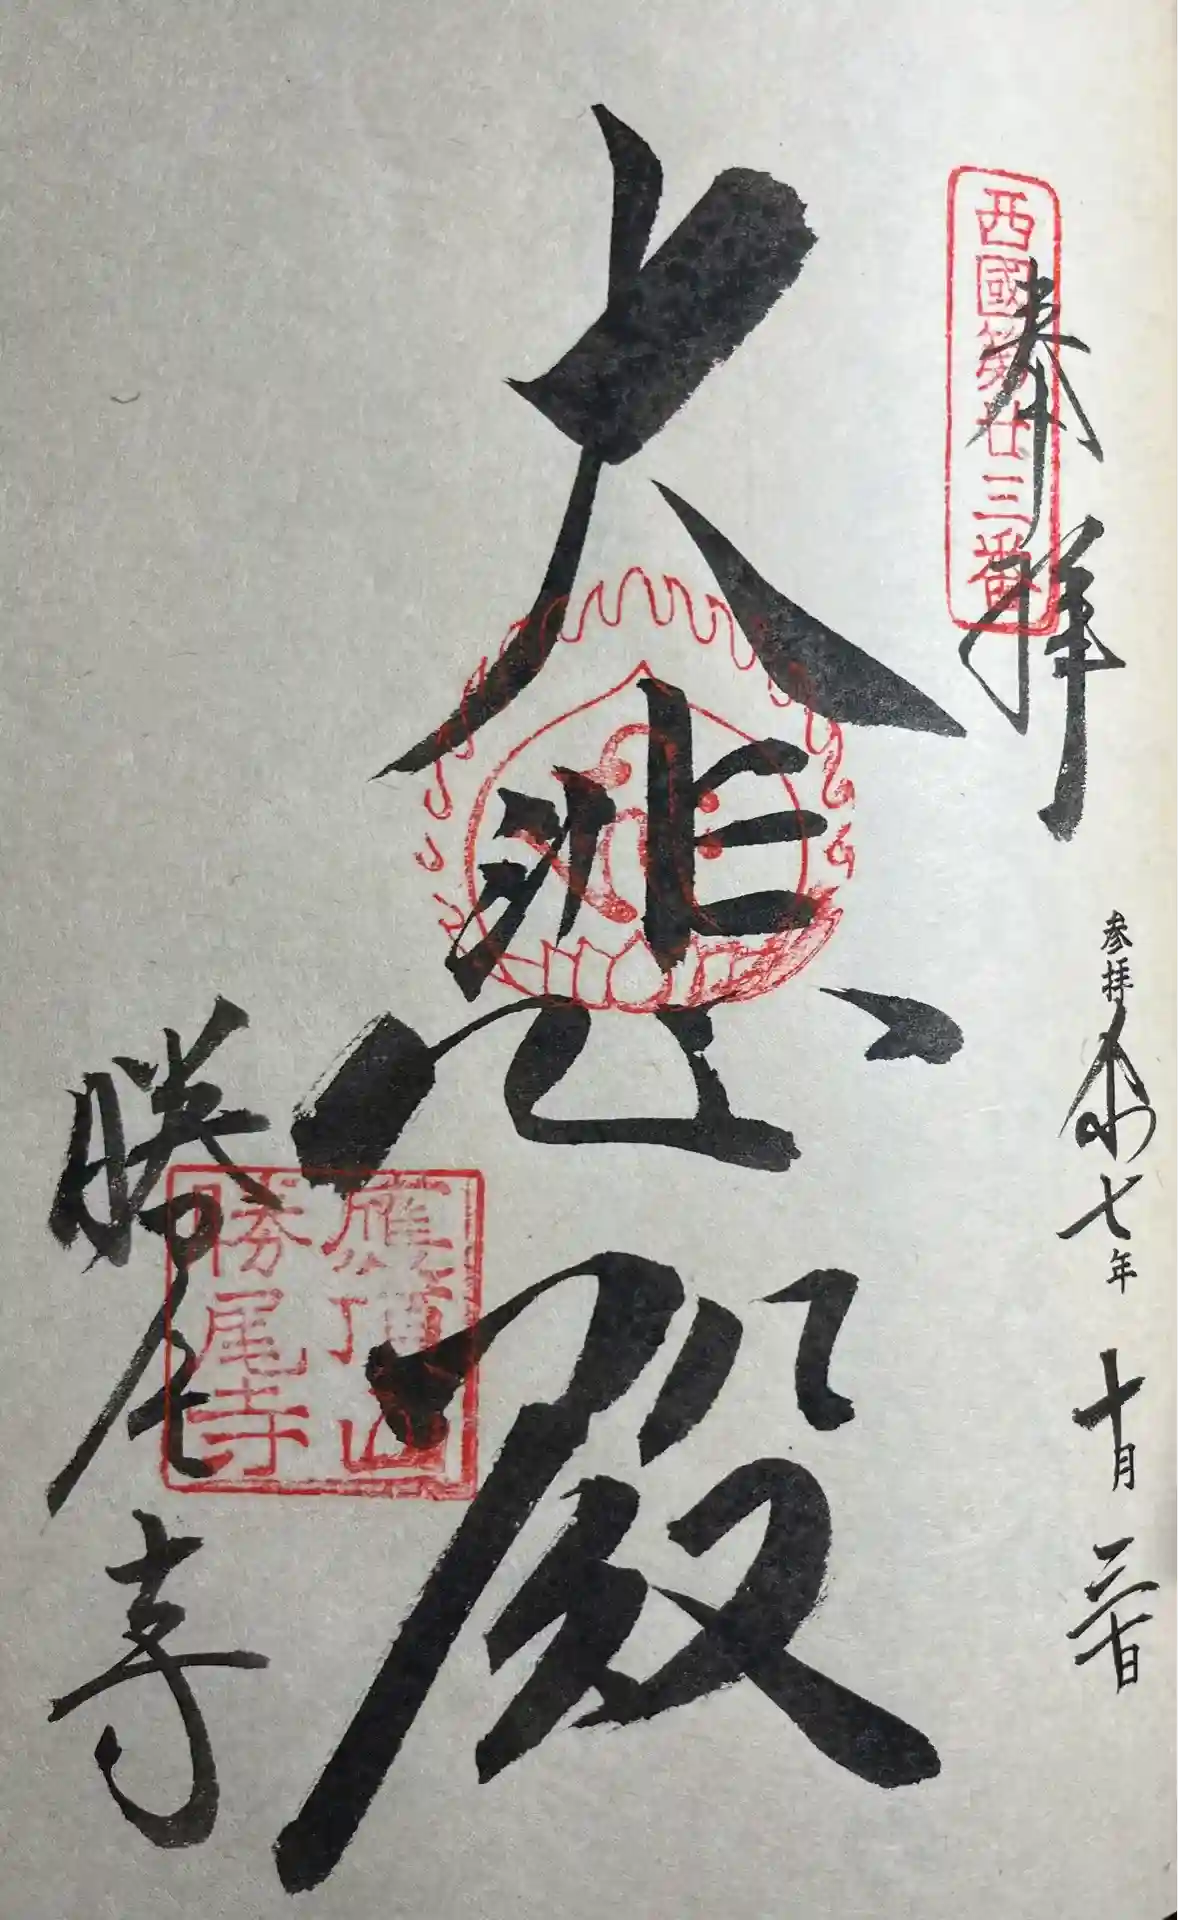 西國第廿三番
奉拝
参拝令和七年十月三十日
大悲殿
應頂山
勝尾寺
勝尾寺